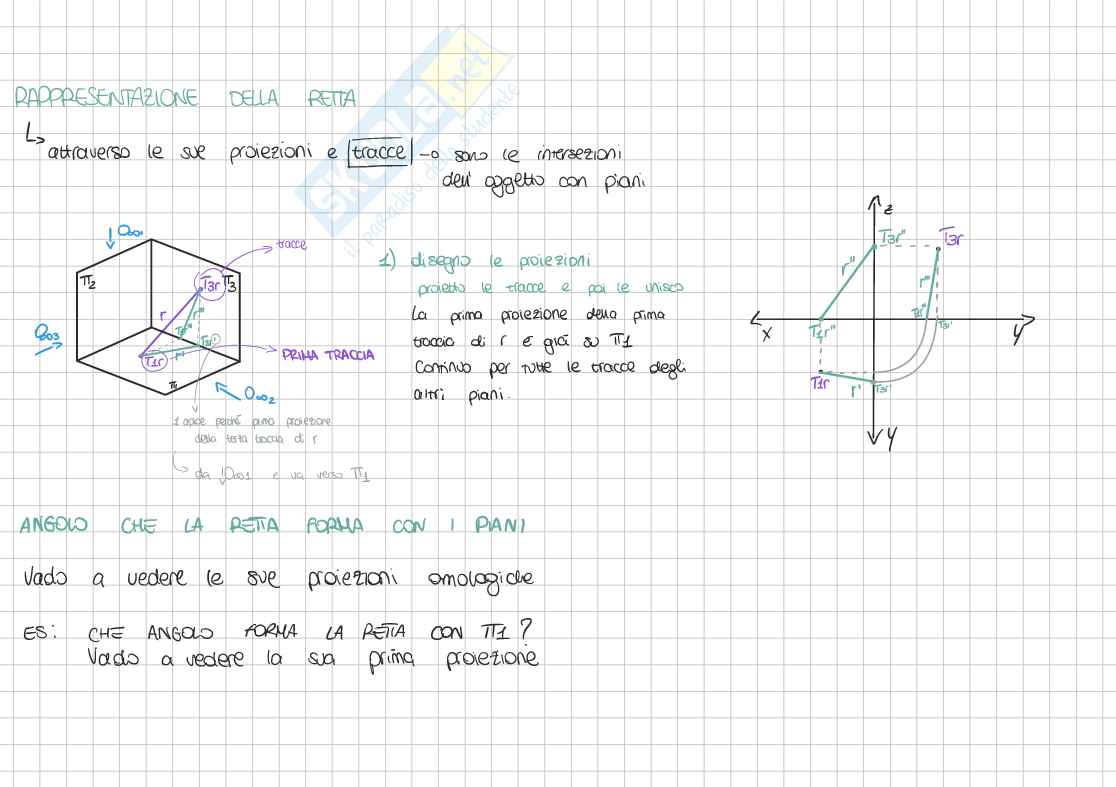 RAPPRESENTAZIONE DELLA RETTA
attraverso le sue proiezioni e tracce → sono le intersezioni
dell' oggetto con piani
SKUOLA.net
il paradiso dello studente
O∞1
tracce
π2
T3r
π3
r
r''
O∞3
T3r'
r'
T1r
PRIMA TRACCIA
π1
O∞2
1 apice perché prima proiezione
della terza traccia di r
da O∞1 e va verso π1
1) disegno le proiezioni
proietto le tracce e poi le unisco
La prima proiezione della prima
traccia di r è già su π1
Continuo per tutte le tracce degli
altri piani.
z
T3r''
T3r
r''
r'''
x
T1r''
T3r'
y
T1r
r'
T3r'
y
ANGOLO CHE LA RETTA FORMA CON I PIANI
Vado a vedere le sue proiezioni omologiche
ES: CHE ANGOLO FORMA LA RETTA CON π1?
Vado a vedere la sua prima proiezione